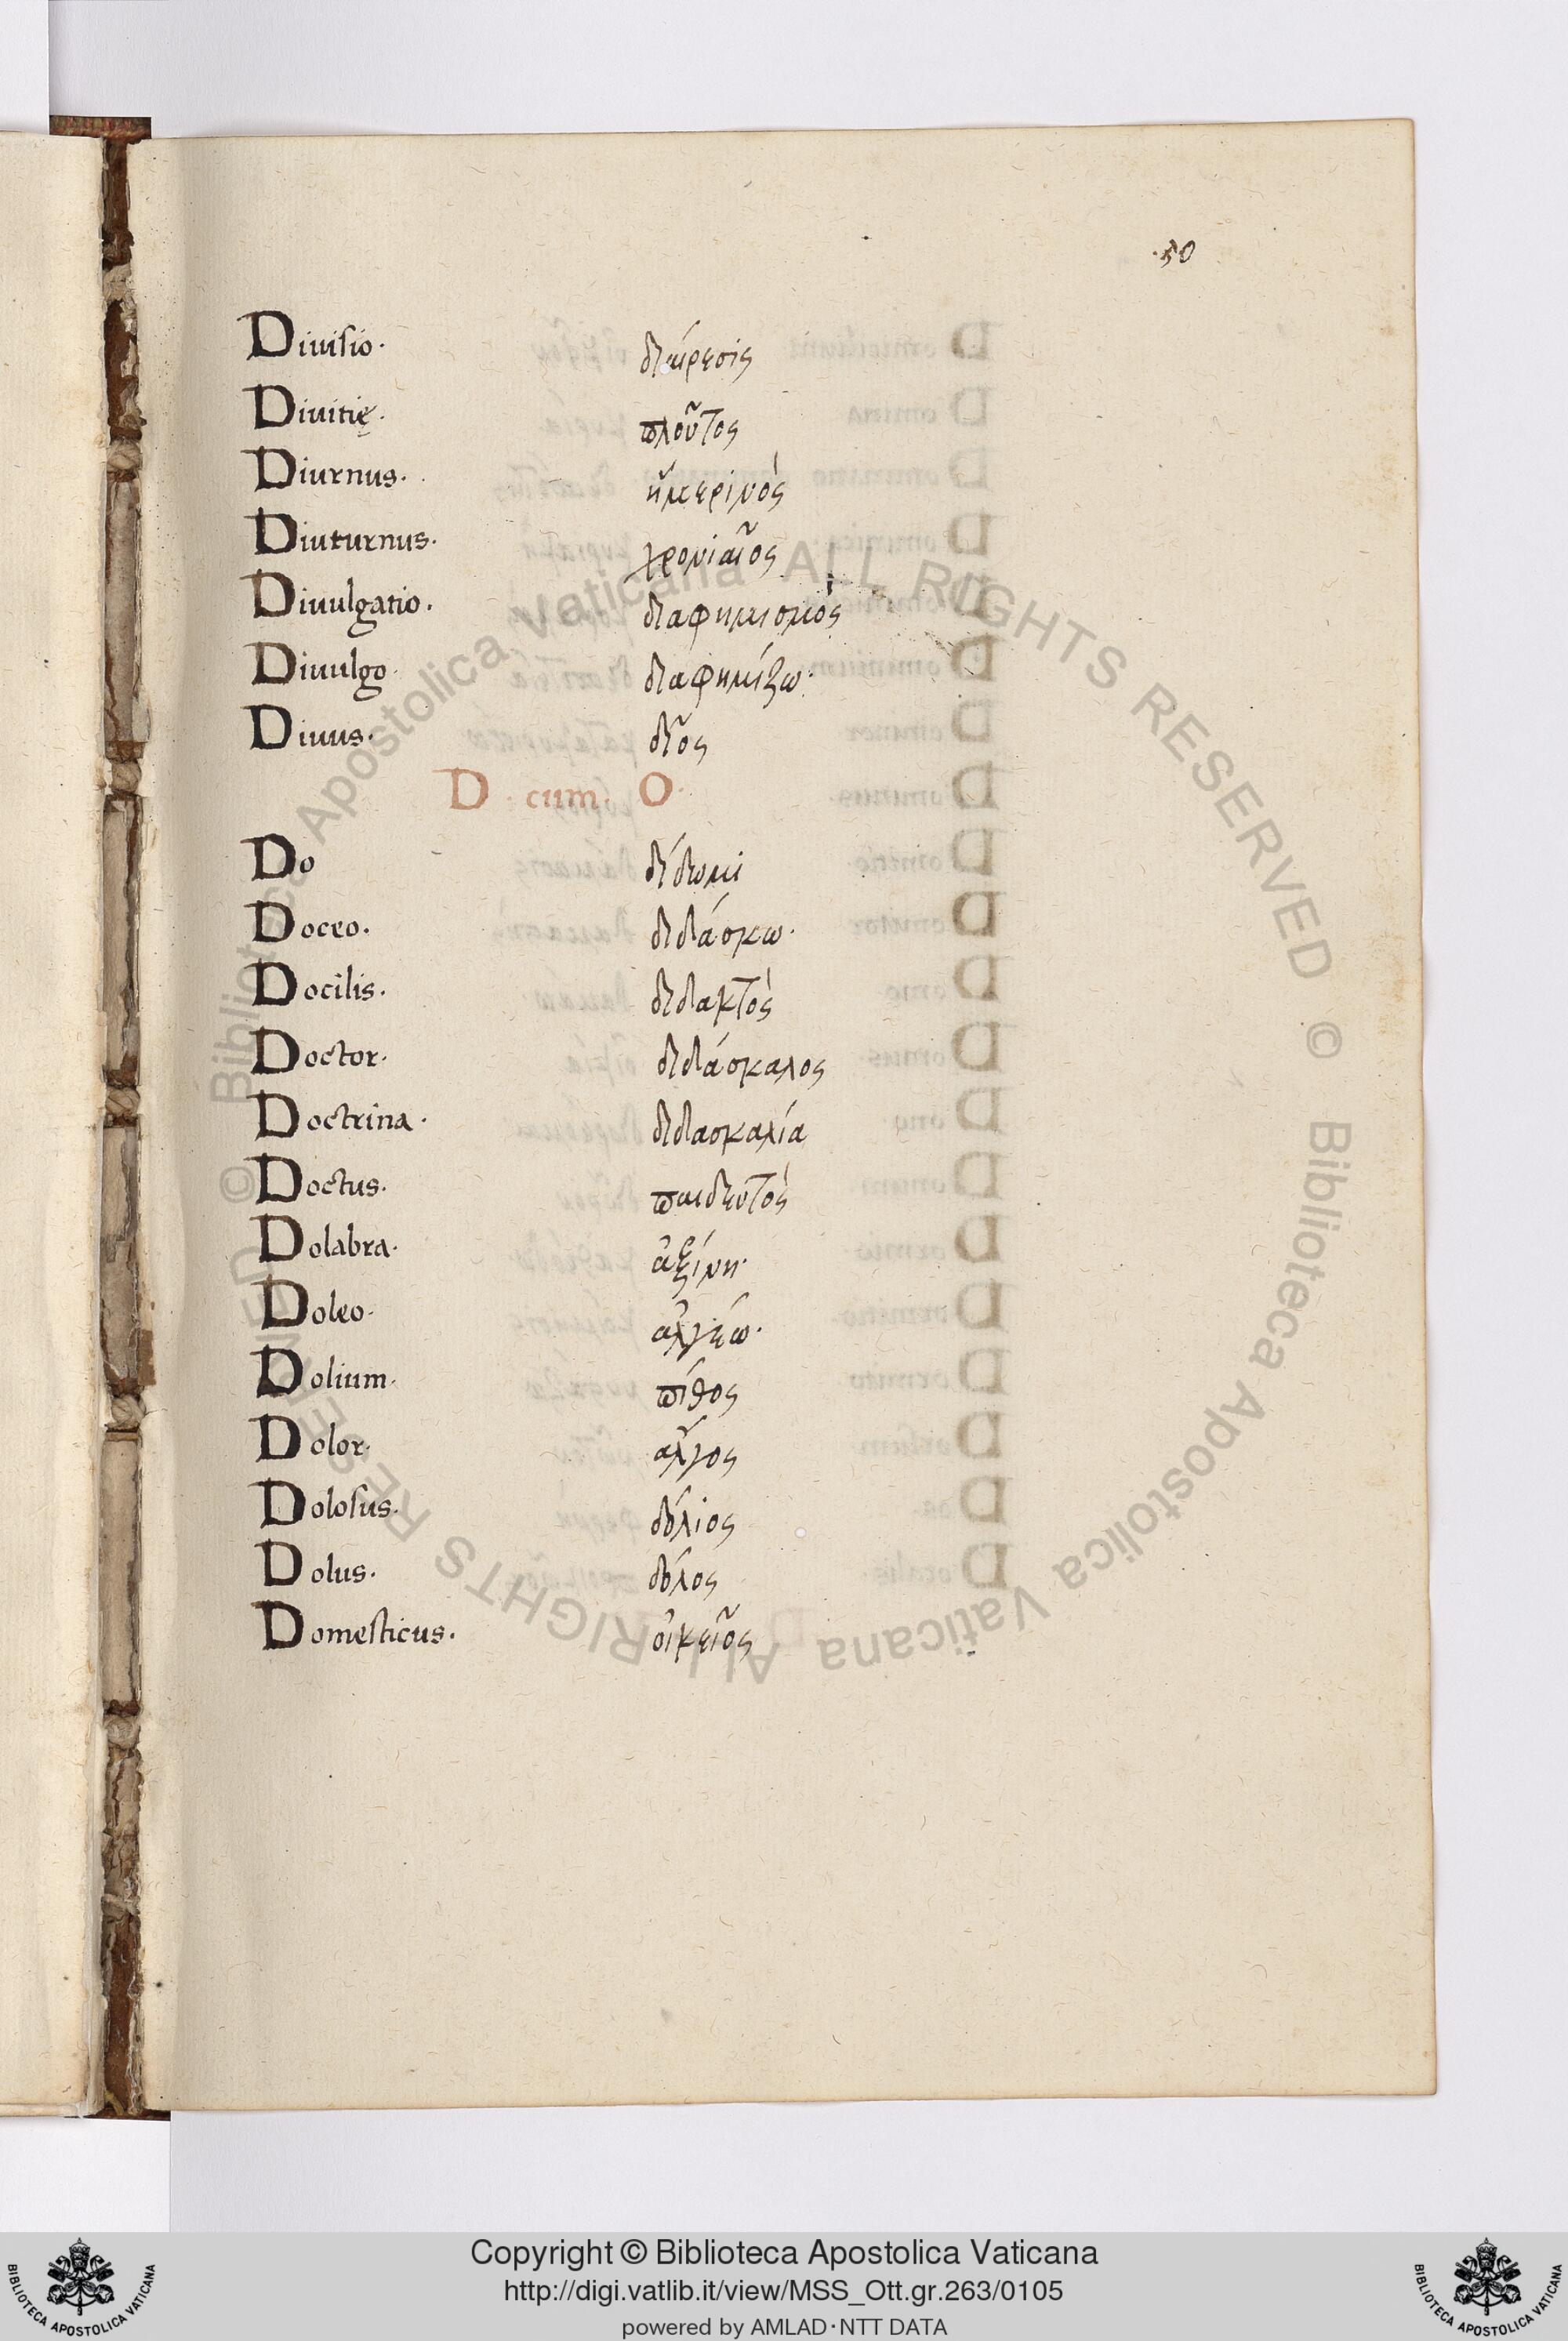 50
Diuisio· διαίρεσις
Diuitię· πλοῦτος
Diurnus· ἡμερινὸς
Diuturnus· χρονιαῖος
Diuulgatio· διαφημισμὸς
Diuulgo· διαφημίζω·
Diuus· δῖος
D· cum· O·
Do δίδωμι
Doceo· διδάσκω·
Docilis· διδακτὸς
Doctor· διδάσκαλος
Doctrina· διδασκαλία
Doctus· παιδευτὸς
Dolabra· ἀξίνη·
Doleo· ἀλγέω·
Dolium· πίθος
Dolor· ἄλγος
Dolosus· δόλιος
Dolus· δόλος
Domesticus· οἰκεῖος
© Biblioteca Apostolica Vaticana ALL RIGHTS RESERVED © Biblioteca Apostolica Vaticana ALL RIGHTS RESERVED
Copyright © Biblioteca Apostolica Vaticana
http://digi.vatlib.it/view/MSS_Ott.gr.263/0105
powered by AMLAD·NTT DATA
BIBLIOTECA APOSTOLICA VATICANA
BIBLIOTECA APOSTOLICA VATICANA